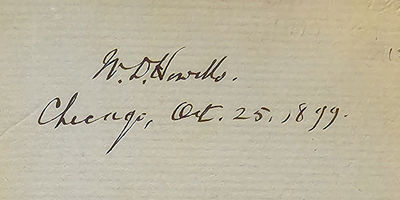 W. D. Howells.
Chicago, Oct. 25, 1899.